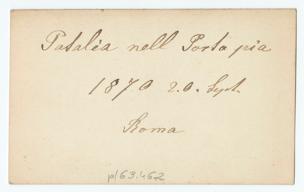 Patalèa nell Porta pia
1870 20. Sept.
Roma
pl63.462